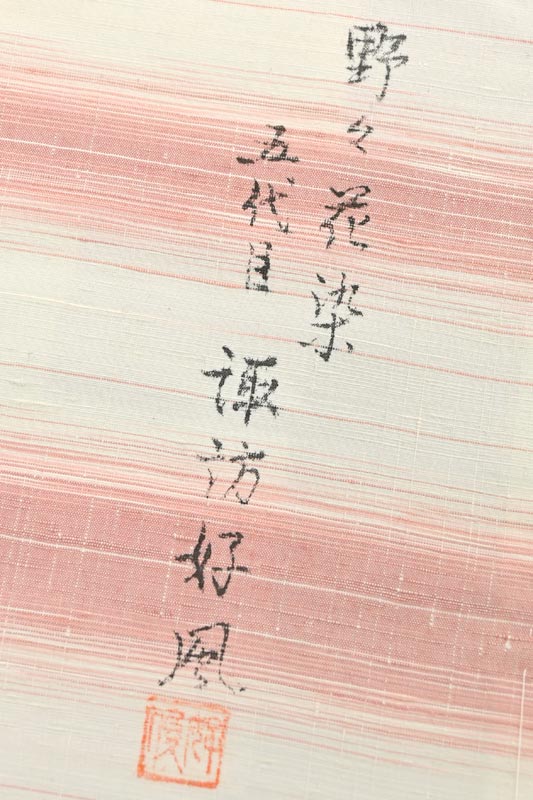 野々花染
五代目 諏訪好風